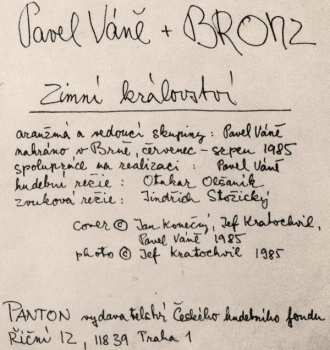 Pavel Váně + BRONZ
Zimní království
aranžmá a vedoucí skupiny: Pavel Váně
nahráno v Brně, červenec - srpen 1985
spolupráce na realizaci: Pavel Váně
hudební režie: Otakar Olšaník
zvuková režie: Jindřich Stožický
cover © Jan Konečný, Jef Kratochvil,
Pavel Váně 1985
photo © Jef Kratochvil 1985
PANTON vydavatelství Českého hudebního fondu
Říční 12, 118 39 Praha 1